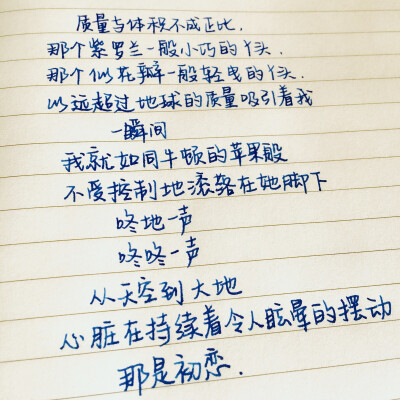 质量与体积不成正比.
那个紫罗兰一般小巧的丫头.
那个似花瓣一般轻曳的丫头.
以远超过地球的质量吸引着我
一瞬间
我就如同牛顿的苹果般
不受控制地滚落在她脚下
咚地一声
咚咚一声
从天空到大地
心脏在持续着令人眩晕的摆动
那是初恋.